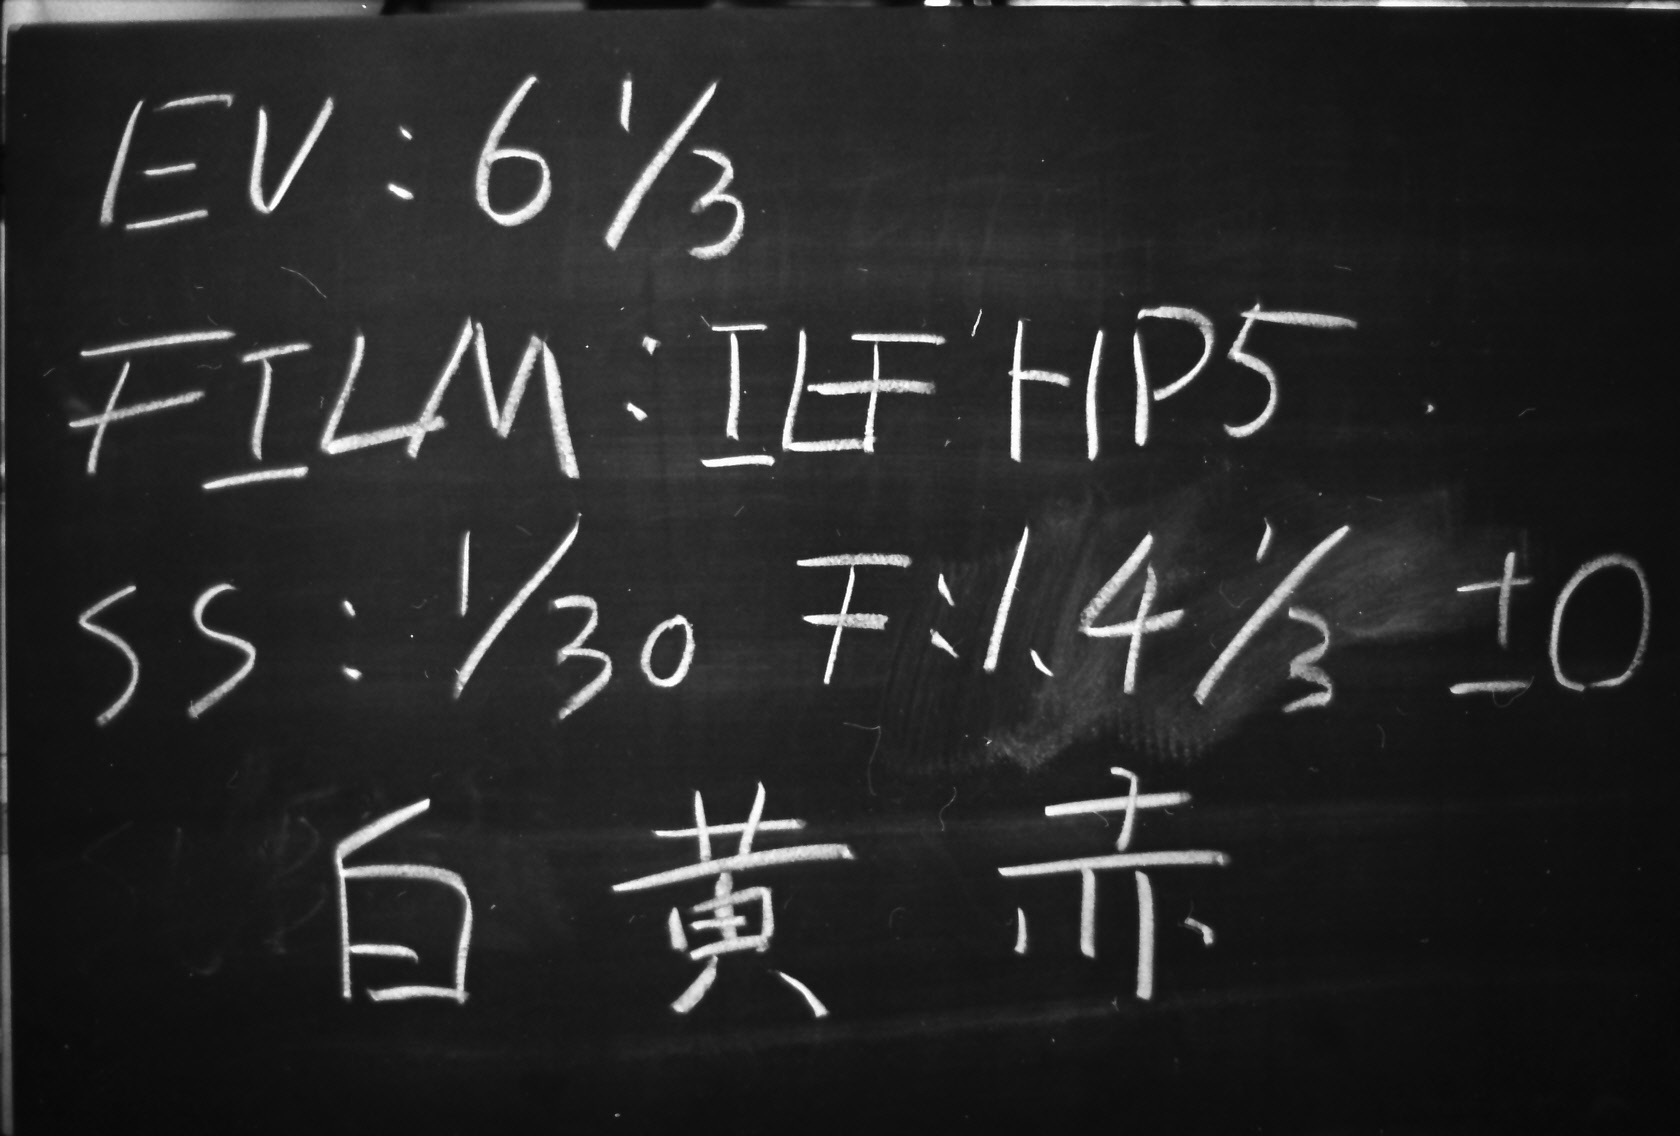 EV:6 1/3
FILM:ILF'HP5
SS:1/30 F:1.4 1/3 ±0
白 黄 赤